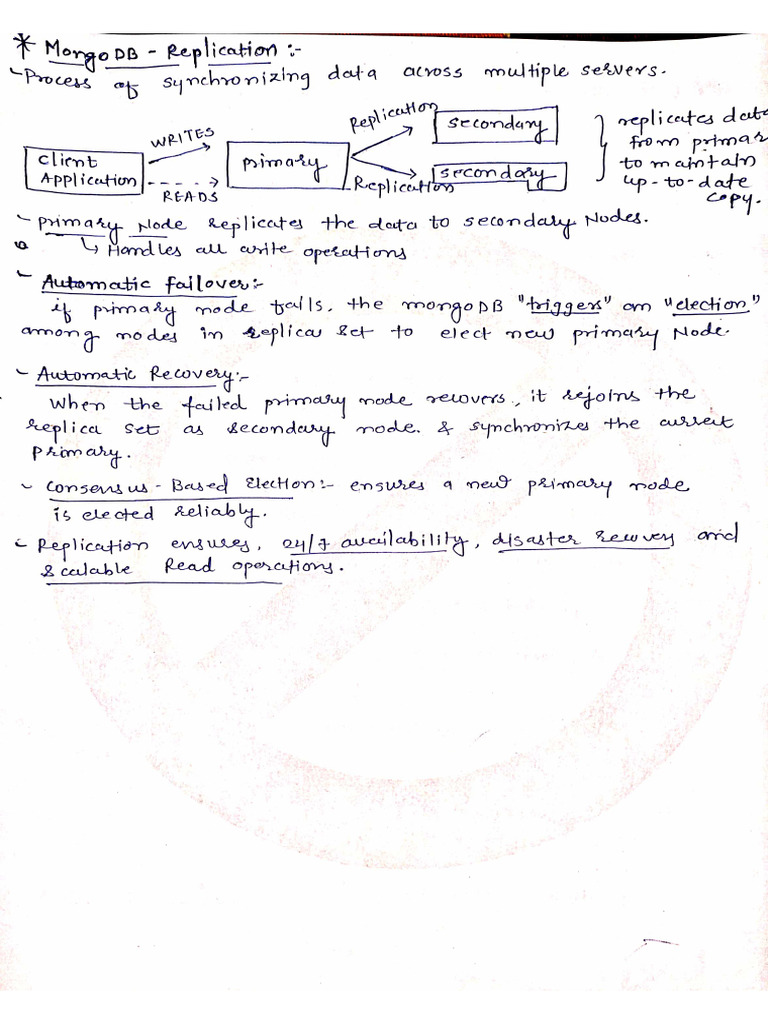 * MongoDB - Replication :-
- Process of synchronizing data across multiple servers.
Client Application
WRITES
READS
primary
Replication
Replication
secondary
secondary
replicates data
from primar
to maintain
up-to-date
copy.
- primary Node replicates the data to secondary Nodes.
↳ Handles all write operations
- Automatic failover:-
if primary node fails, the mongoDB "triggers" an "election"
among nodes in replica set to elect new primary Node.
- Automatic Recovery:-
When the failed primary node recovers, it rejoins the
replica set as secondary node. & synchronizes the current
primary.
- Consensus - Based Election:- ensures a new primary node
is elected reliably.
- Replication ensures, 24/7 availability, disaster recovery and
scalable Read operations.